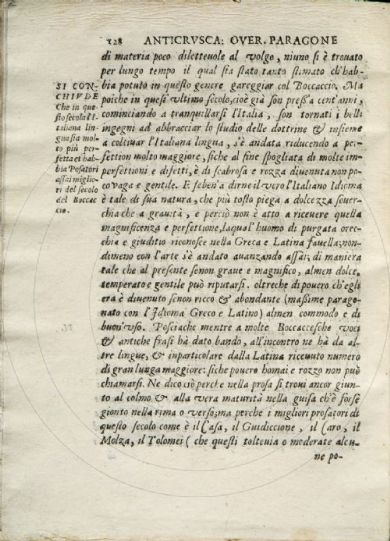 128 ANTICRVSCA: OVER. PARAGONE
di materia poco dilettevole al volgo, niuno si è trovato
per lungo tempo il qual sia stato tanto stimato ch'hab-
bia potuto in questo genere gareggiar col Boccaccio. Ma
poiche in quest' ultimo secolo, cioè già son press'a cent'anni,
cominciando a tranquillarsi l'Italia, son tornati i belli
ingegni ad abbracciar lo studio delle dottrine & insieme
a coltivar l'Italiana lingua, s'è andata riducendo a per-
fettion molto maggiore, siche al fine spogliata di molte im-
perfettioni e difetti, è di scabrosa e rozza divenuta non po-
co vaga e gentile. E seben'a dirne il vero l'Italiano Idioma
è tale di sua natura, che più tosto piega a dolcezza sover-
chia che a gravità, e perciò non è atto a ricevere quella
magnificenza e perfettione, laqual' huomo di purgata orec-
chia e giuditio riconosce nella Greca e Latina favella; non-
dimeno con l'arte s'è andato avanzando assai; di maniera
tale che al presente se non grave e magnifico, almen dolce,
temperato e gentile può riputarsi, oltreche di povero ch'egli
era è divenuto se non ricco & abondante (massime parago-
nato con l'Idioma Greco e Latino) almen commodo e di
buon'uso. Posciache mentre a molte Boccaccesche voci
& antiche frasi hà dato bando, all'incontro ne hà da al-
tre lingue, & in particolare dalla Latina ricevuto numero
di gran lunga maggiore: siche povere homai e rozzo non può
chiamarsi. Ne dico ciò perche nella prosa si trovi ancor giun-
to al colmo & alla vera maturità nella guisa ch'è forse
gionto nella rima o verso; ma perche i migliori prosatori di
questo secolo come è il Casa, il Guidiccione, il Caro, il
Molza, il Tolomei ( che questi toltevia o moderate alcu-
ne po-
SI CON-
CHIVDE
Che in que
sto secolo l'I
taliana lin-
gua sia mol-
to più per-
fetta et hab-
bia Posatori
assai miglio-
ri del secolo
del Boccac
cio.